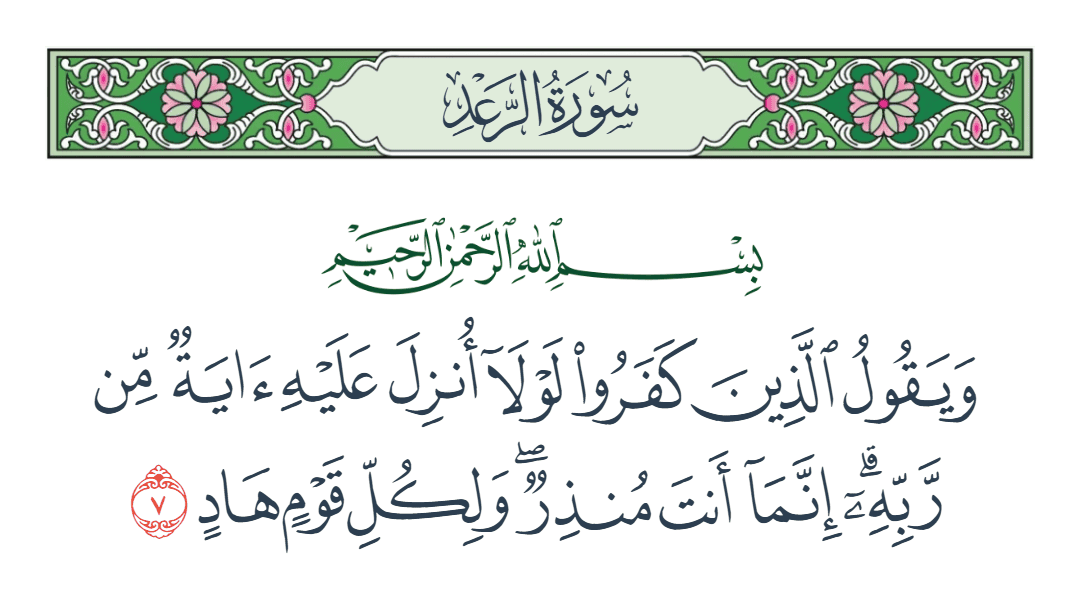 سُورَةُ الرَّعْدِ
بِسْمِ ٱللَّهِ ٱلرَّحْمَٰنِ ٱلرَّحِيمِ
وَيَقُولُ ٱلَّذِينَ كَفَرُوا۟ لَوْلَآ أُنزِلَ عَلَيْهِ ءَايَةٌ مِّن
رَّبِّهِۦٓ ۗ إِنَّمَآ أَنتَ مُنذِرٌ ۖ وَلِكُلِّ قَوْمٍ هَادٍ ٧